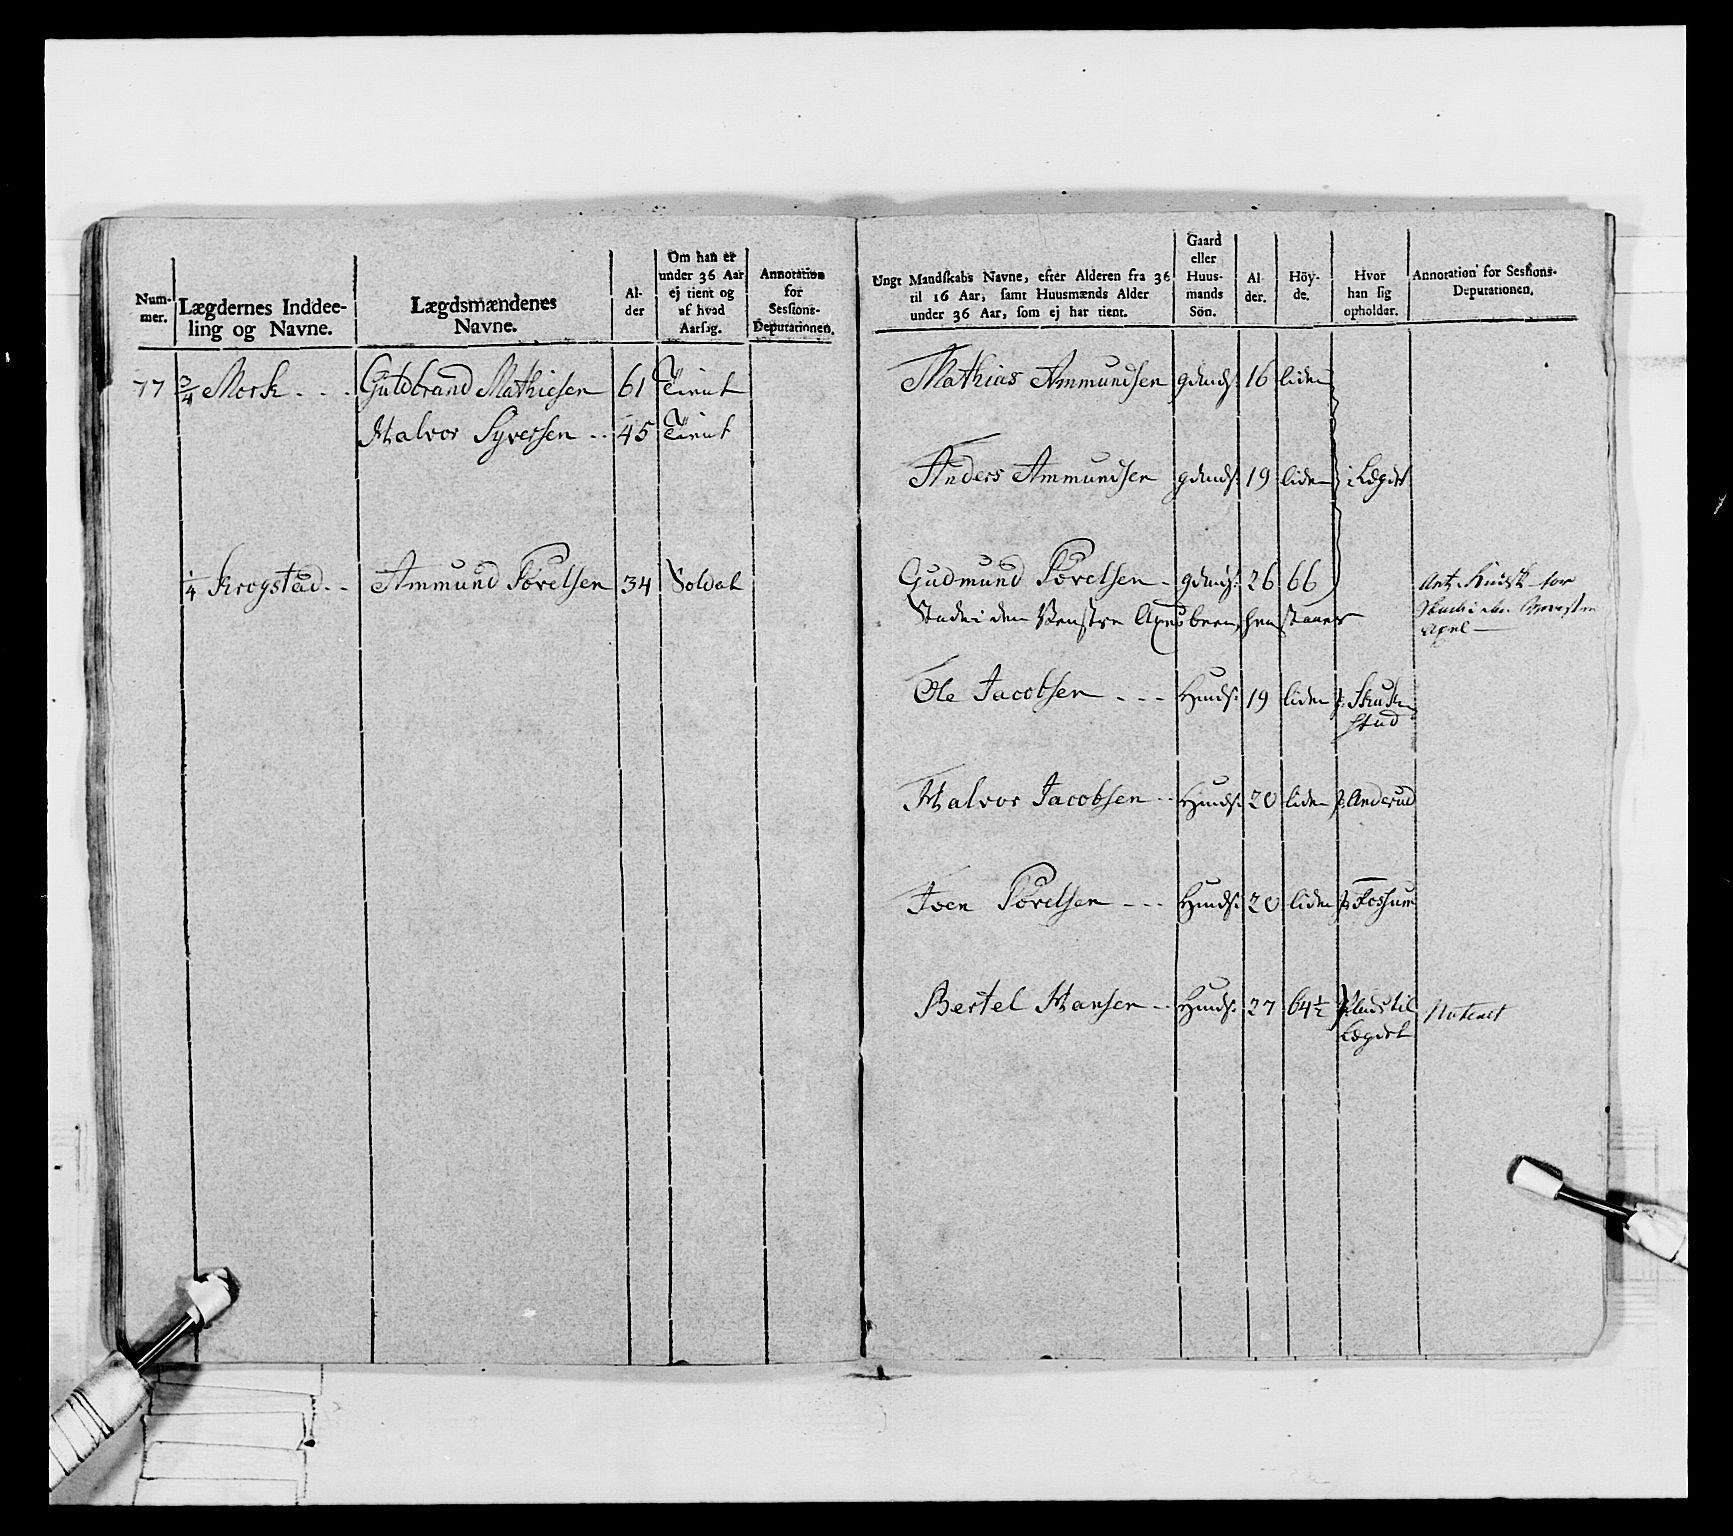 Num-
mer.
Lægdernes Inddee-
ling og Navne.
Lægdsmændenes
Navne.
Al-
der
Om han er
under 36 Aar
ej tient og
af hvad
Aarsag.
Annotation
for
Sessions-
Deputationen.
77 3/4 Mork . . . Guldbrand Mathiesen 61 Tient
Halvor Syversen . . 45 Tient
1/4 Krogstad . . Ammund Torelsen 34 Soldat
Ungt Mandskabs Navne, efter Alderen fra 36
til 16 Aar, samt Huusmænds Alder
under 36 Aar, som ej har tient.
Gaard
eller
Huus-
mands
Sön.
Al-
der.
Höy-
de.
Hvor
han sig
opholder.
Annotation for Sessions-
Deputationen.
Mathias Ammundsen gdmds: 16 liden
Anders Ammundsen gdmds: 19 liden i Lægdet
Gudmund Torelsen - gdmds: 26 66
den Venstre
Ole Jacobsen - - - Hmds: 19 liden
stad
Halvor Jacobsen - - Hmds: 20 liden p: Anderud
Iven Torelsen - - - Hmds: 20 liden p: Fossum
Bertel Hansen - - Hmds: 27 64 1/2
Lægdet
Noteret